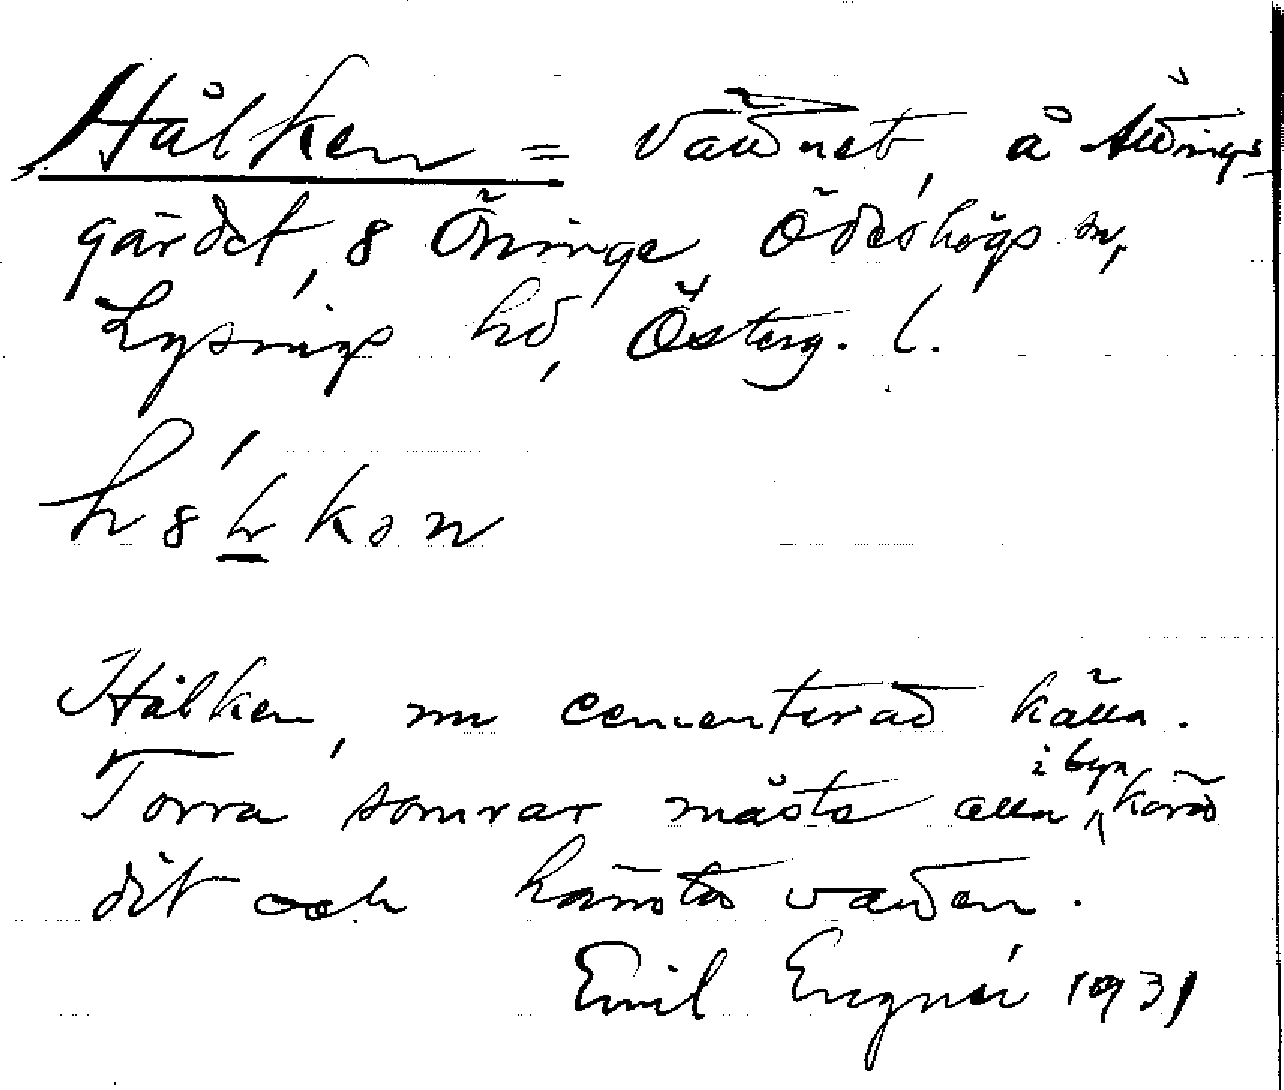 Hålken = vadnet, å
gärdet, 8 Öninge, Ödeshögs sn,
Lysings hd, Österg. l.
Hålken, nu cementerad källa.
Torra somrar måste alla i byn köra
dit och hämta vatten.
Emil Engnér 1931